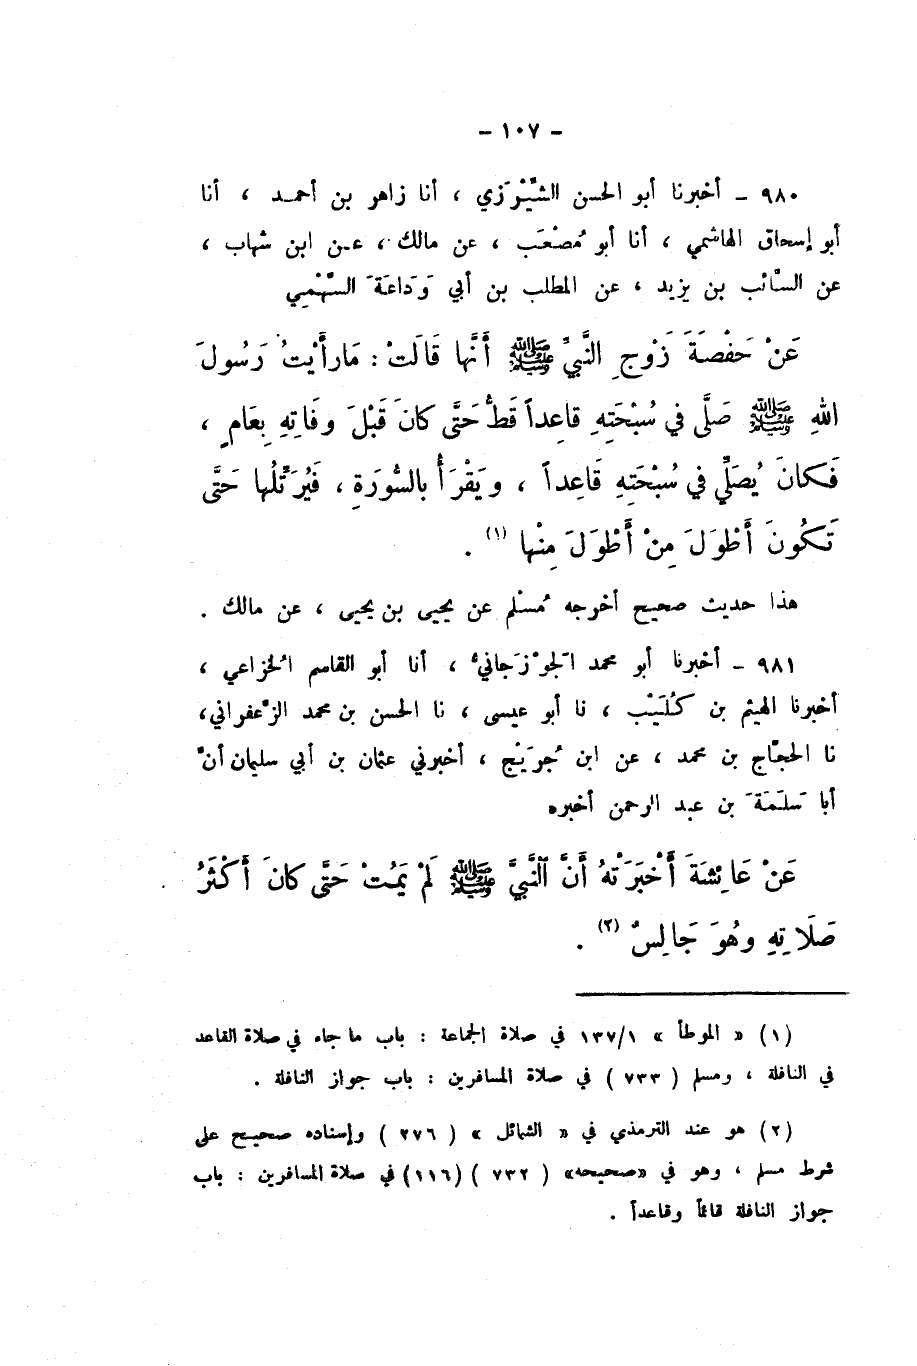 - ١٠٧ -
٩٨٠ - أخبرنا أبو الحسن الشِّيْرَزي ، أنا زاهر بن أحمد ، أنا
أبو إسحاق الهاشمي ، أنا أبو مُصْعَب ، عن مالك ، عن ابن شهاب ،
عن السَّائب بن يزيد ، عن المطلب بن أبي وَدَاعَةَ السَّهْمِي
عَنْ حَفْصَةَ زَوْجِ النَّبيِّ ﷺ أَنَّها قَالَتْ : مَارأَيْتُ رَسُولَ
اللهِ ﷺ صَلَّى في سُبْحَتِهِ قاعِداً قَطُّ حَتَّى كانَ قَبْلَ وفَاتِهِ بِعَامٍ ،
فَكانَ يُصَلِّي في سُبْحَتِهِ قَاعِداً ، ويَقْرَأُ بالسُّورَةِ ، فَيُرَتِّلُها حَتَّى
تَكُونَ أَطْوَلَ مِنْ أَطْوَلَ مِنْها (١) .
هذا حديث صحيح أخرجه مُسْلم عن يحيى بن يحيى ، عن مالك .
٩٨١ - أخبرنا أبو محمد الجَوْزَجانيُّ ، أنا أبو القاسم الخُزاعي ،
أخبرنا الهيثم بن كُلَيْب ، نا أبو عيسى ، نا الحسن بن محمد الزَّعفراني،
نا الحجَّاج بن محمد ، عن ابن جُرَيْج ، أخبرني عثمان بن أبي سليمان أنَّ
أبا سَلَمَةَ بن عبد الرحمن أخبره
عَنْ عَائِشَةَ أَخْبَرَتْهُ أَنَّ النَّبيَّ ﷺ لَمْ يَمُتْ حَتَّى كانَ أَكْثَرُ
صَلَاتِهِ وهُوَ جَالِسٌ (٢) .
(١) « الموطأ » ١٣٧/١ في صلاة الجماعة : باب ما جاء في صلاة القاعد
في النافلة ، ومسلم ( ٧٣٣ ) في صلاة المسافرين : باب جواز النافلة .
(٢) هو عند الترمذي في « الشمائل » ( ٢٧٦ ) وإسناده صحيح على
شرط مسلم ، وهو في «صحيحه» ( ٧٣٢ ) (١١٦) في صلاة المسافرين : باب
جواز النافلة قائماً وقاعداً .